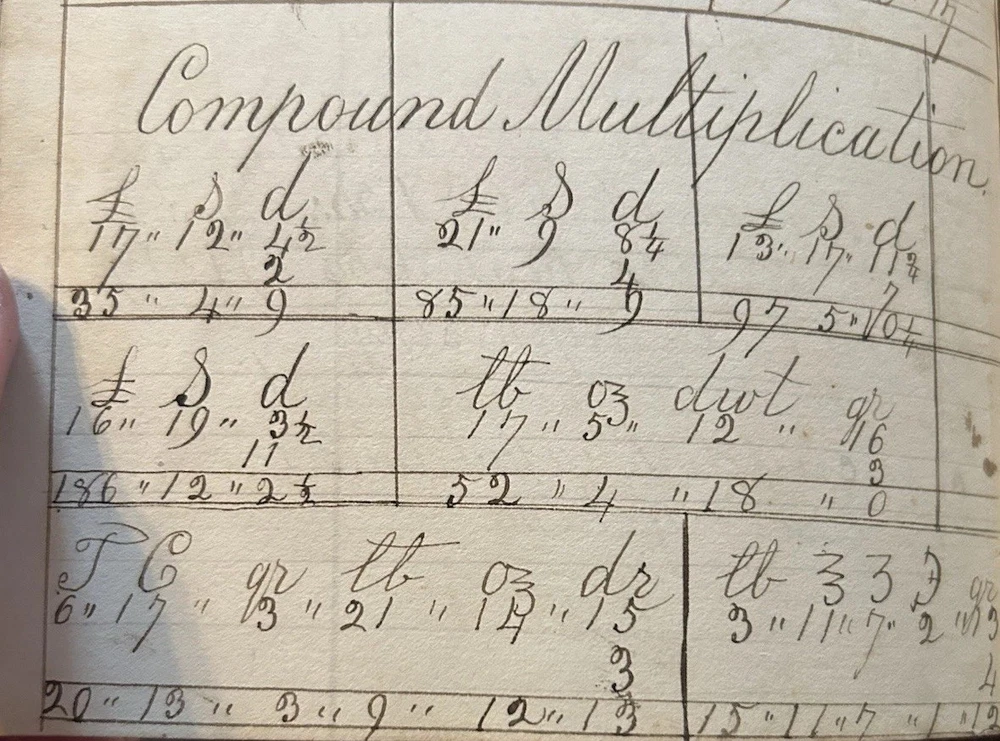 Compound Multiplication.
£ S d
17 " 12 " 4 1/2
2
35 " 4 " 9
£ S d
21 " 9 8 1/4
4
85 " 18 " 9
£ S d
13 " 17 " 11 3/4
7
97 5 " 10 1/4
£ S d
16 " 19 " 3 1/2
11
186 " 12 " 2 1/2
lb oz dwt gr
17 " 5 " 12 " 16
3
52 " 4 " 18 " 0
T C qr lb oz dr
6 " 17 " 3 " 21 " 14 " 15
3
20 " 13 " 3 " 9 " 12 " 13
lb ℥ ʒ ℈ gr
3 " 11 " 7 " 2 " 13
4
15 " 11 " 7 " 1 " 12